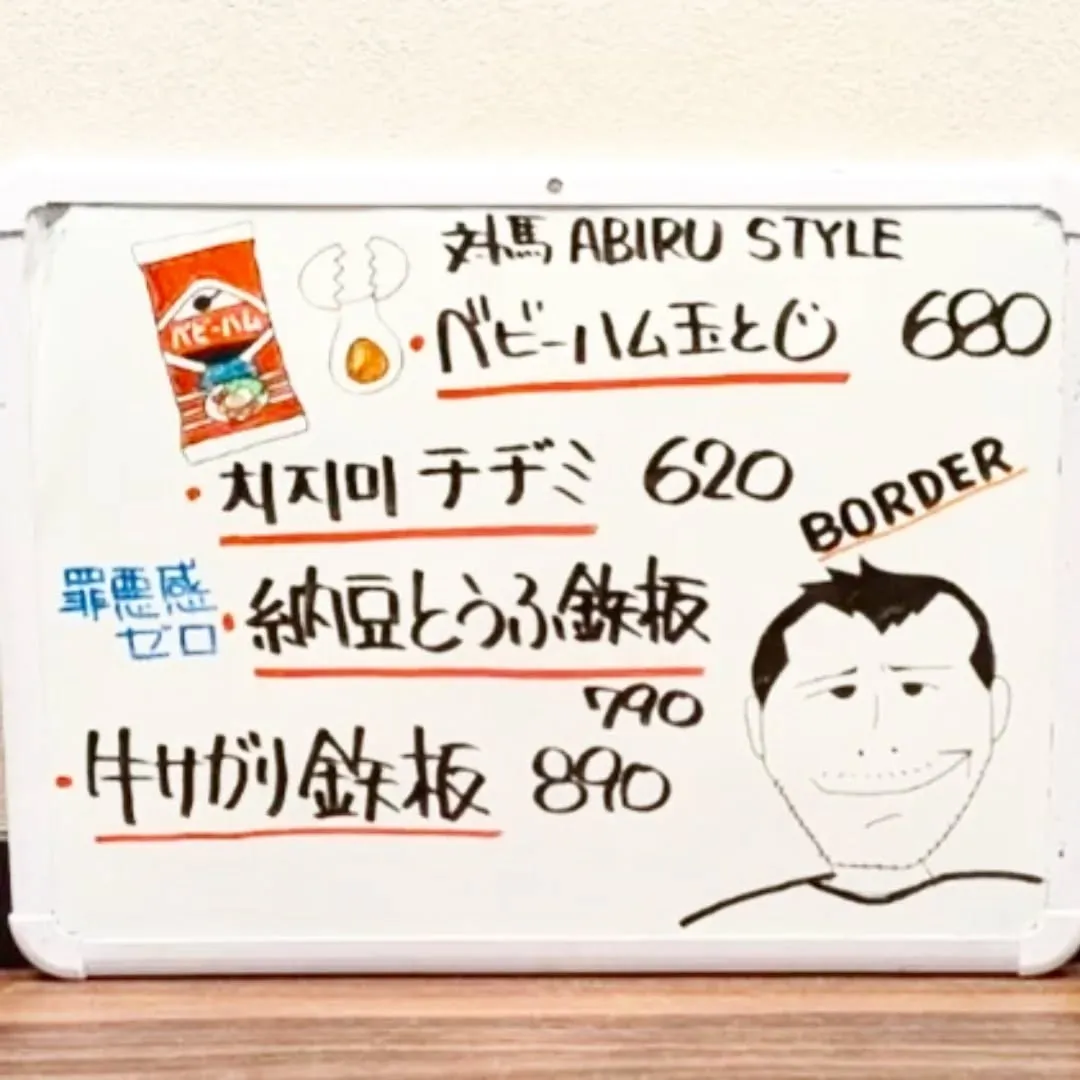 対馬 ABIRU STYLE
ベビーハム
・ベビーハム玉とじ 680
・치지미 チヂミ 620
BORDER
罪悪感
ゼロ
・納豆とうふ鉄板
790
・牛サガリ鉄板 890